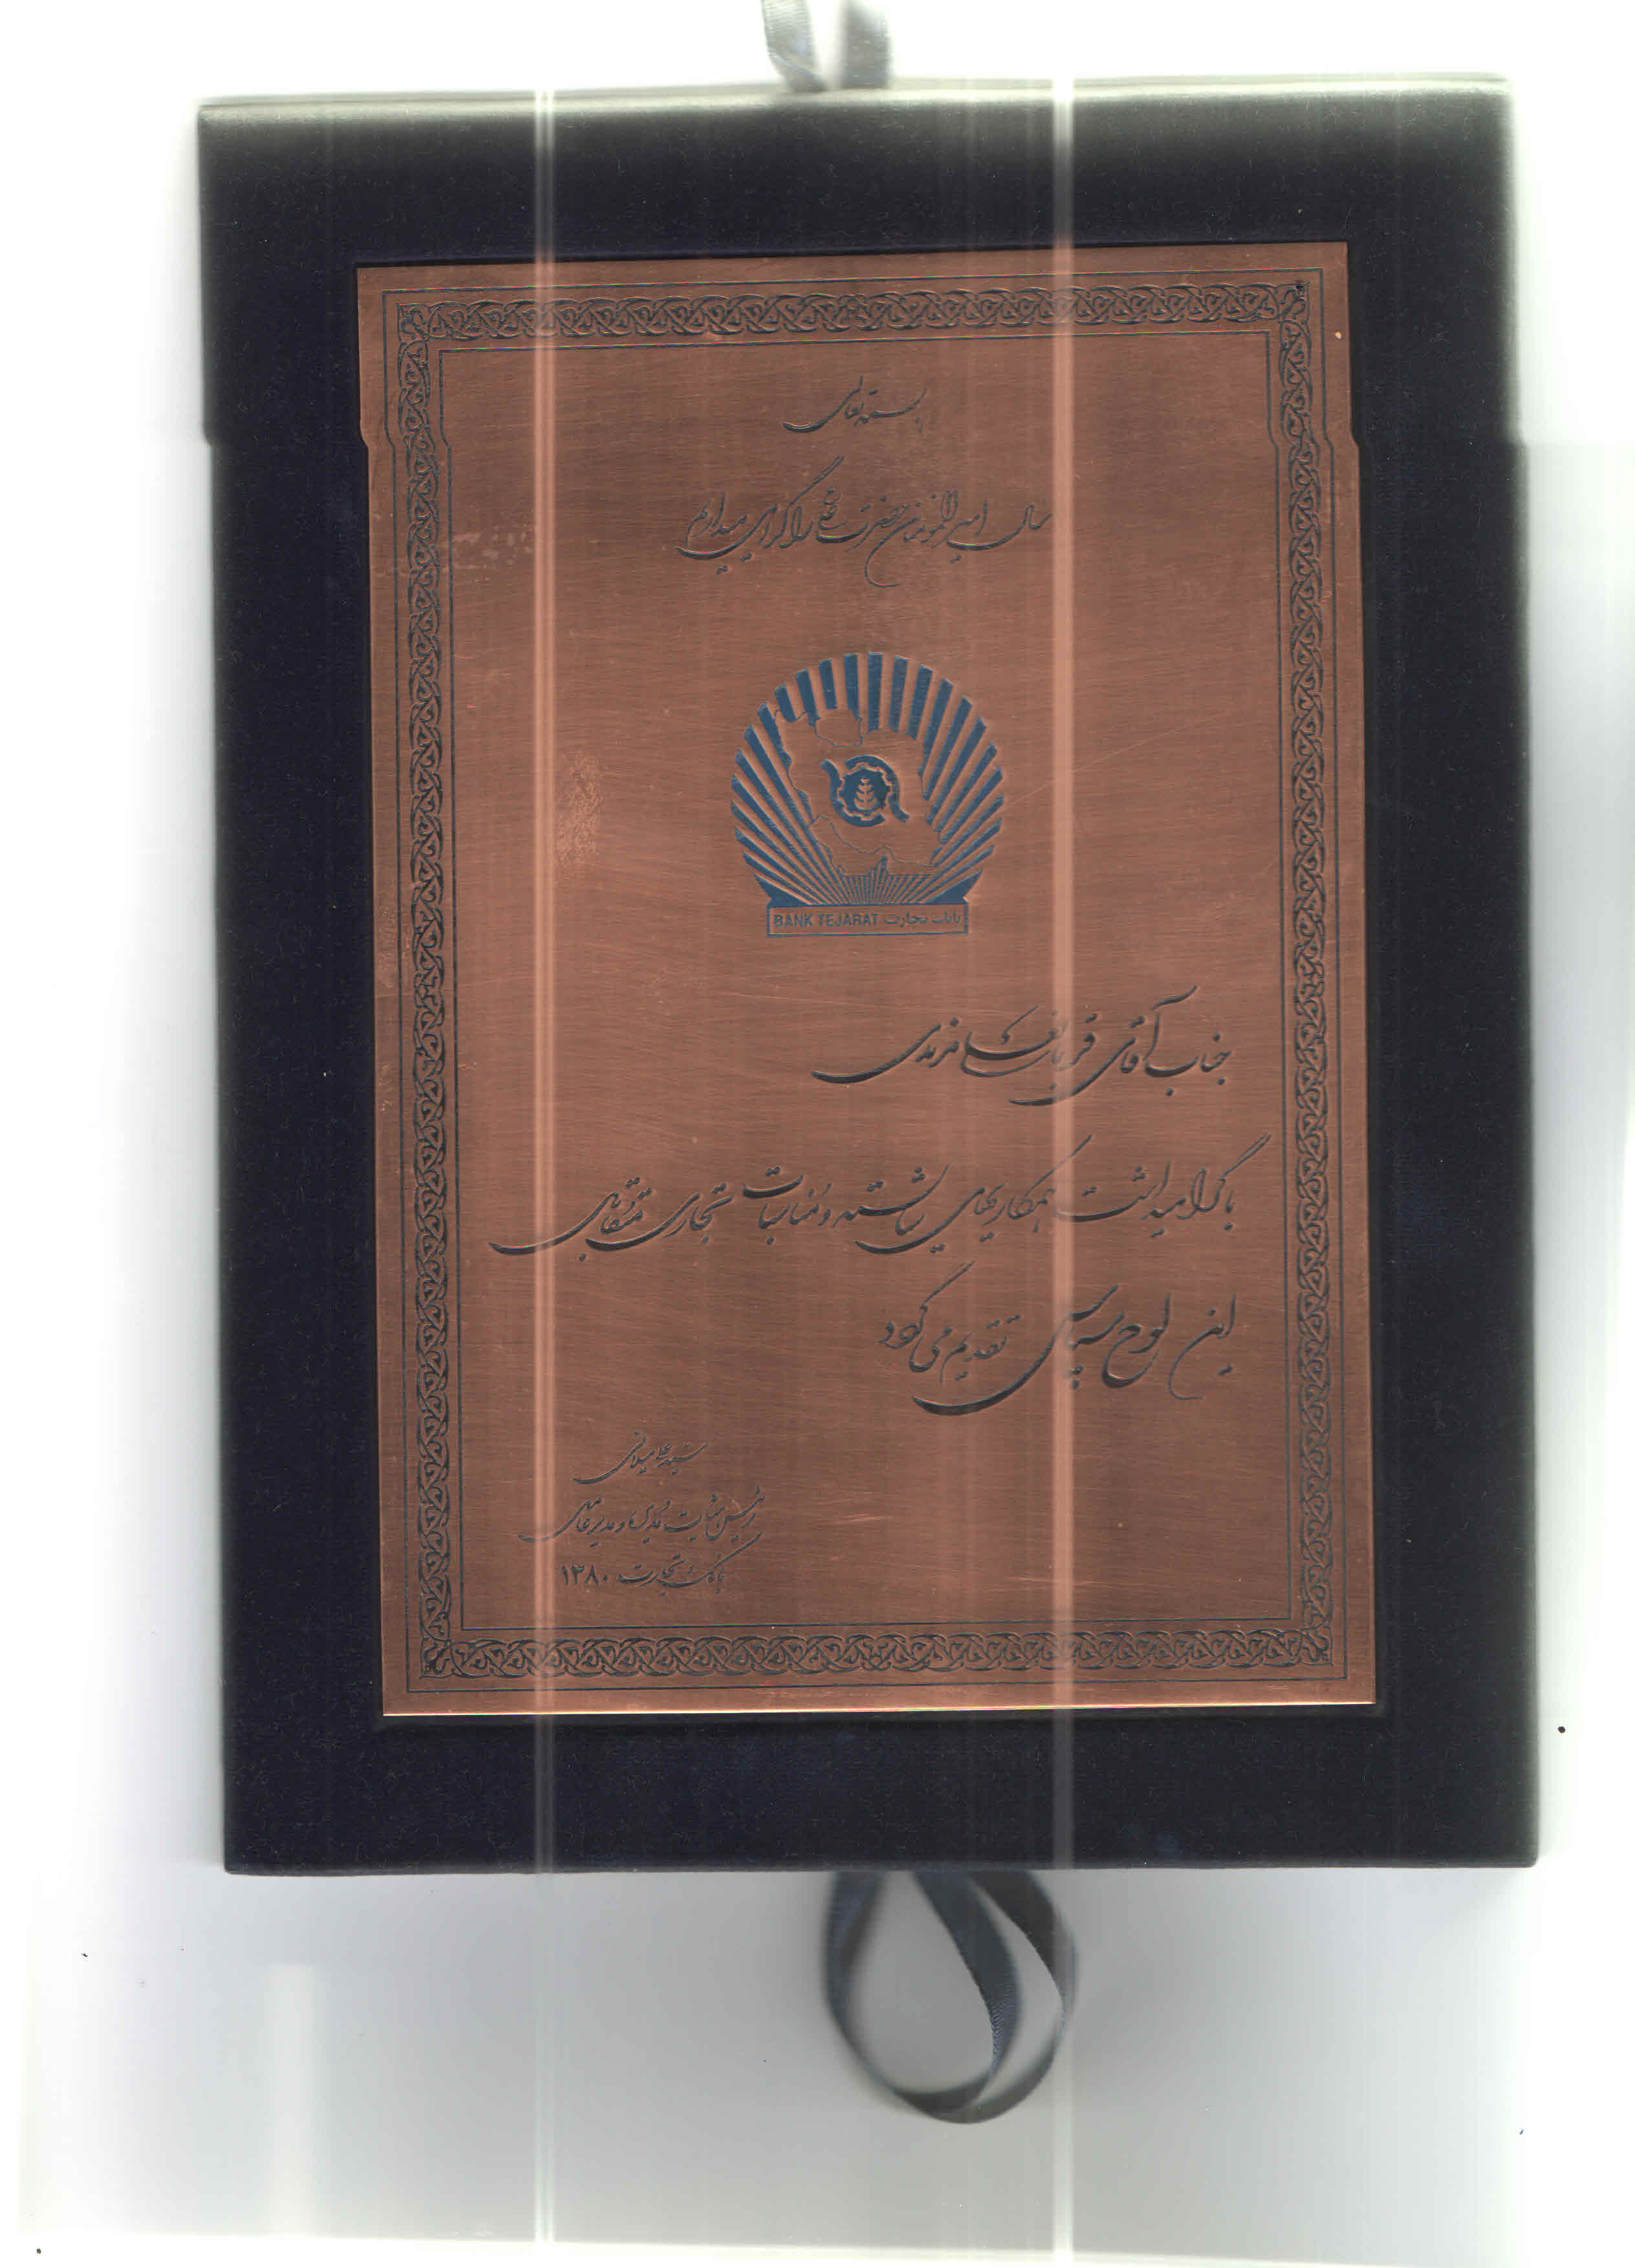 بسمه تعالی
سال امیرالمؤمنان حضرت علی را گرامی میداریم
BANK TEJARAT بانک تجارت
جناب آقای قربانعلی فرندی
با گرامیداشت همکاریهای شایسته و مناسبات تجاری متقابل
این لوح سپاس تقدیم می گردد
سید علی میلانی
رئیس هیئت مدیره و مدیرعامل
بانک تجارت ۱۳۸۰